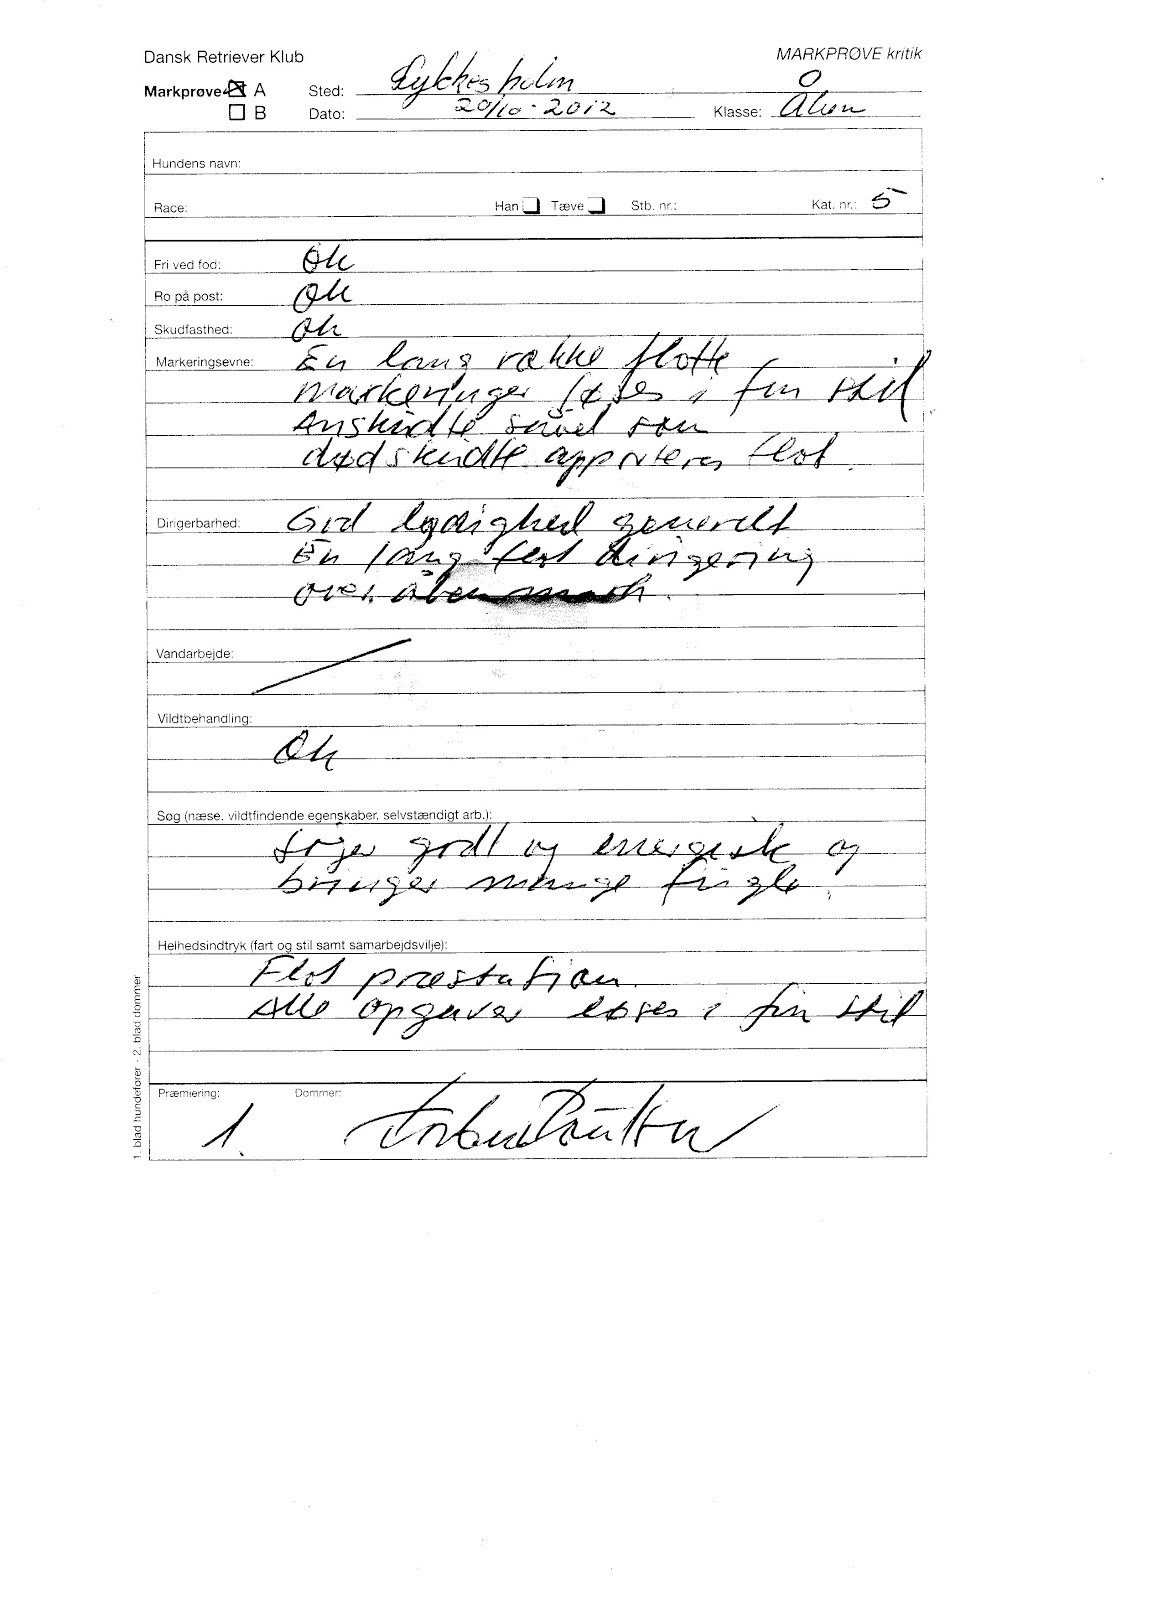 Dansk Retriever Klub
MARKPRØVE kritik
Markprøve A Sted: Lykkesholm
B Dato: 20/10-2012 Klasse: Åben
Hundens navn:
Race: Han Tæve Stb. nr.: Kat. nr.: 5
Fri ved fod: Ok
Ro på post: Ok
Skudfasthed: Ok
Markeringsevne: En lang række flotte
markeringer løses i fin stil
Anskudte såvel som
dødskudte apporteres flot.
Dirigerbarhed: God lydighed generelt
En lang flot dirigering
over åben mark.
Vandarbejde:
Vildtbehandling:
Ok
Søg (næse, vildtfindende egenskaber, selvstændigt arb.):
Søger godt og energisk og
bringer mange fugle.
Helhedsindtryk (fart og stil samt samarbejdsvilje):
Flot præstation.
Alle opgaver løses i fin stil
Præmiering: Dommer:
1.
1. blad hundefører - 2. blad dommer